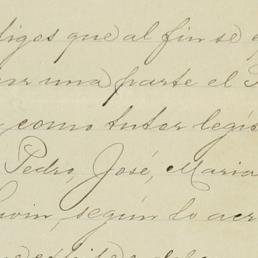 tigos que al fin se
una parte el
como tutor legí
Pedro, José, Maria
según lo acr